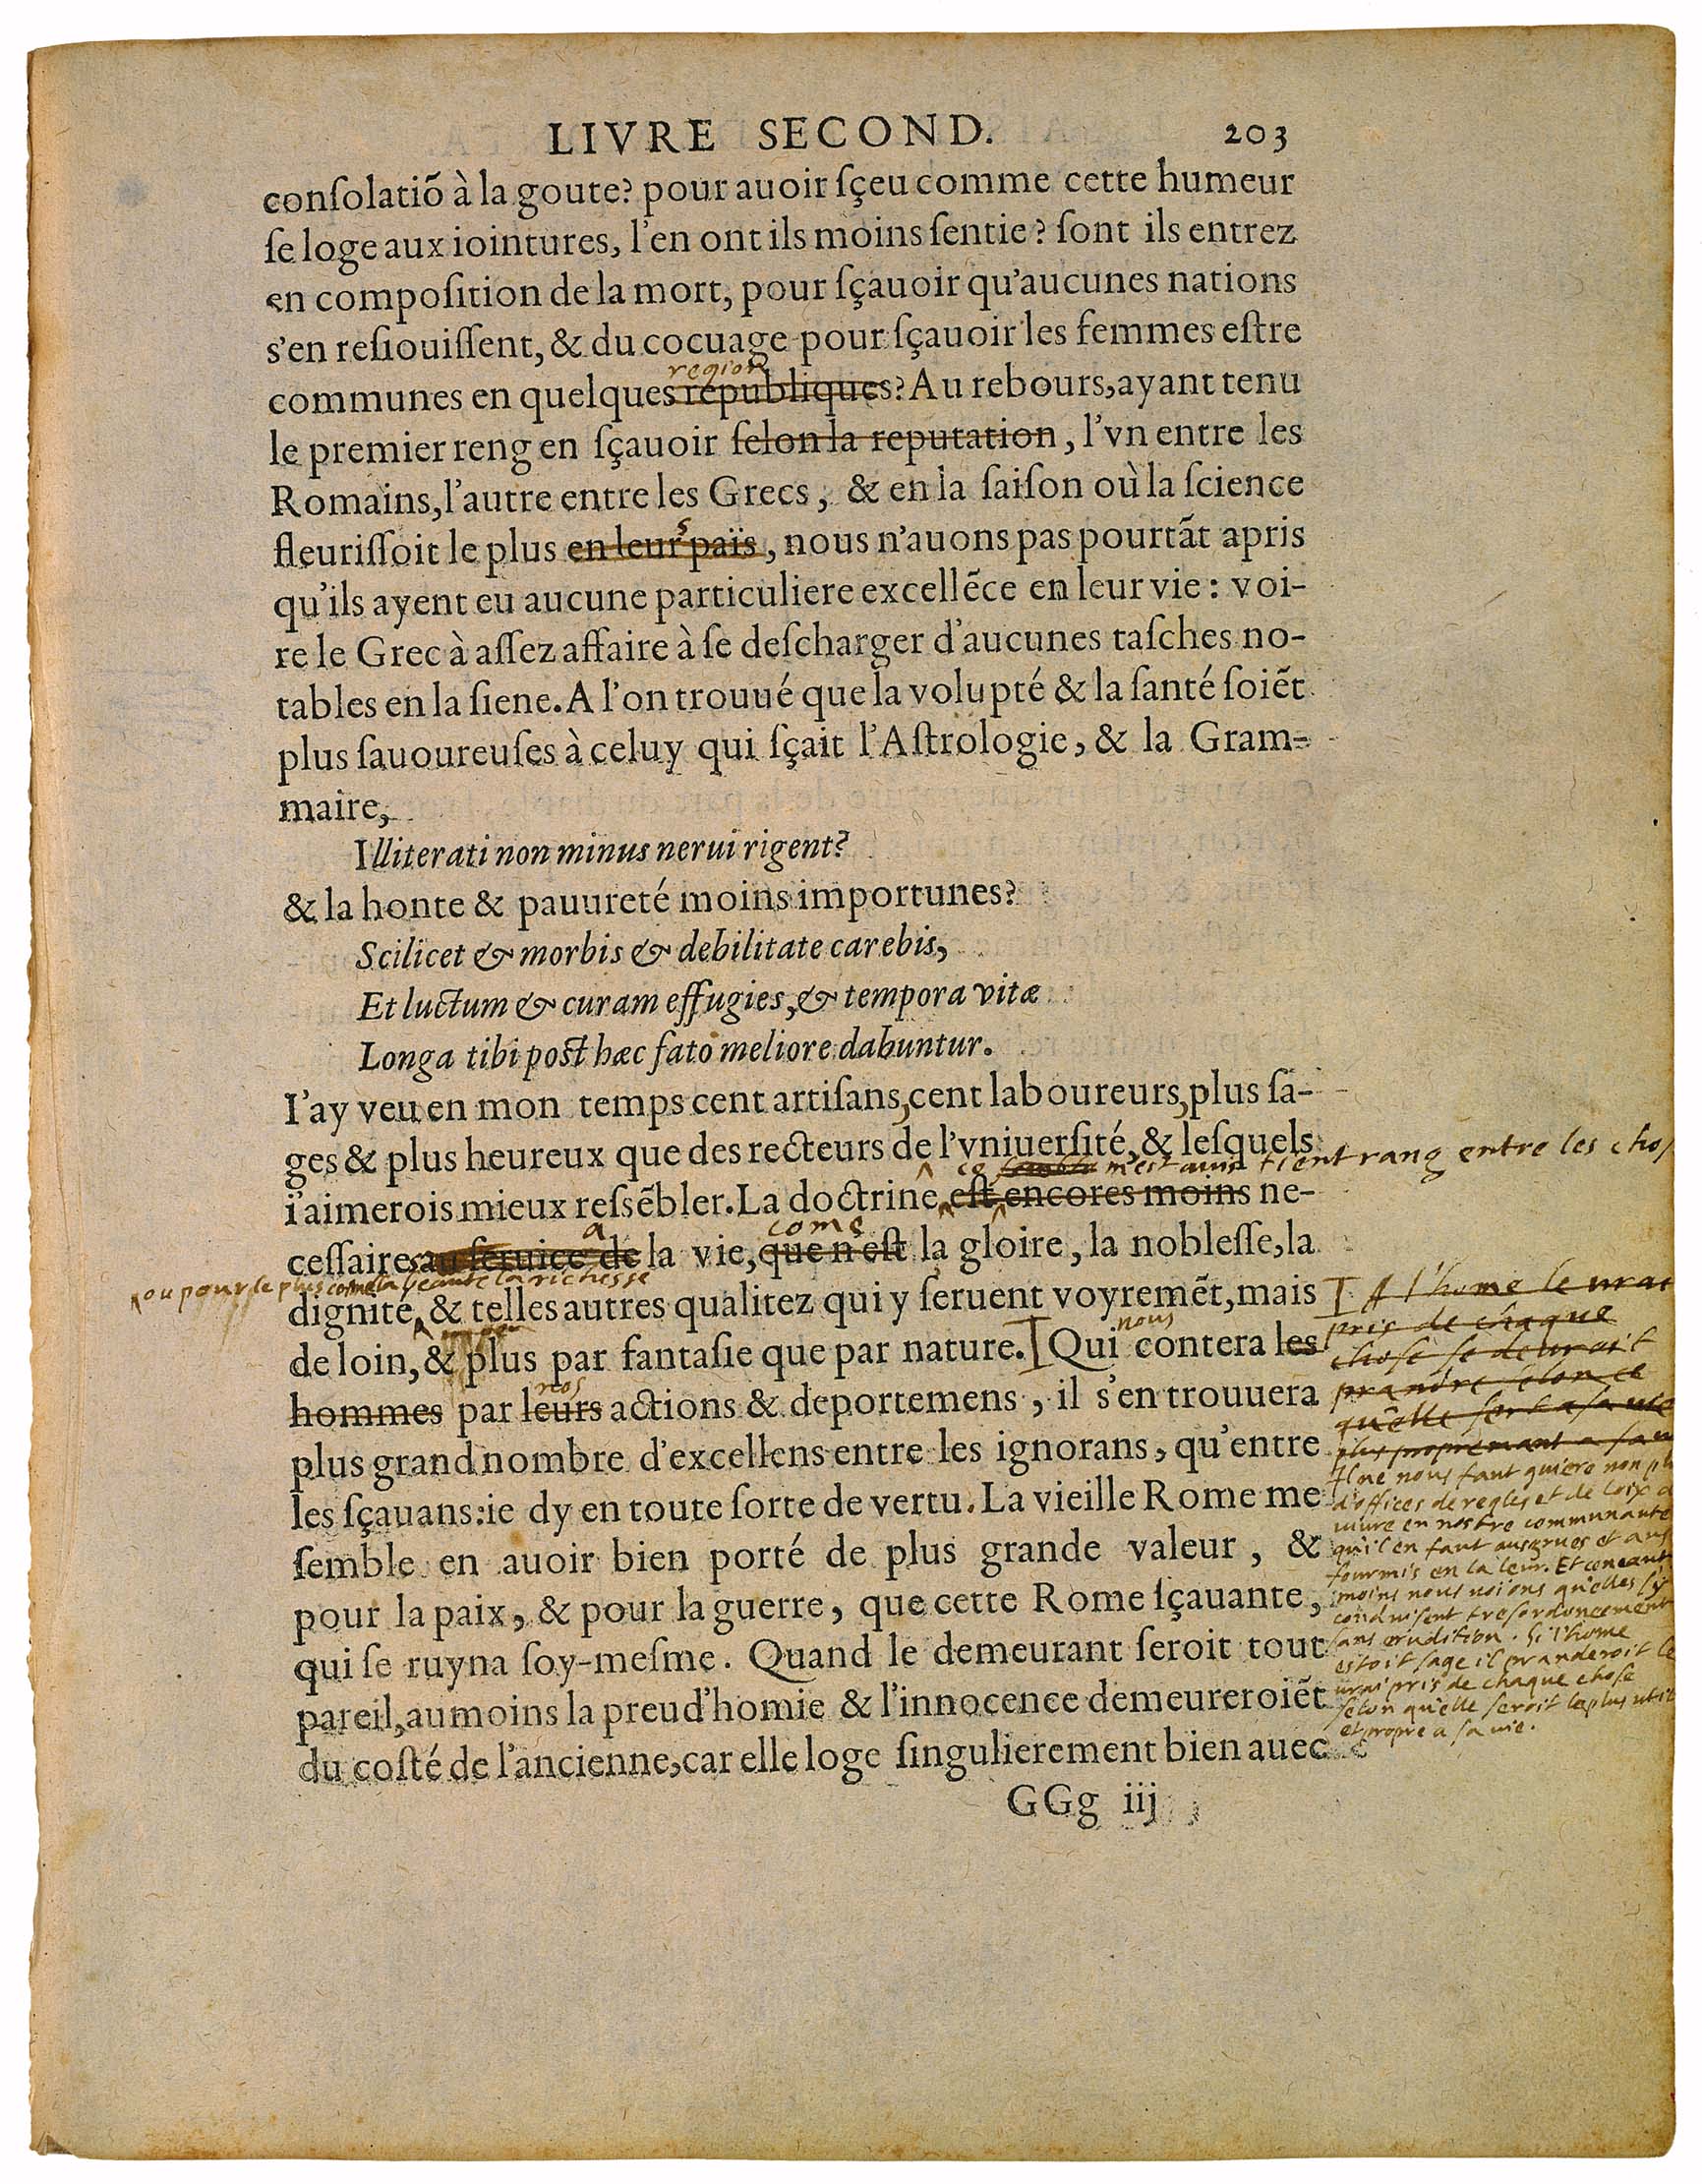 LIVRE SECOND. 203
conſolatiõ à la goute? pour auoir ſçeu comme cette humeur
ſe loge aux iointures, l'en ont ils moins ſentie? ſont ils entrez
en compoſition de la mort, pour ſçauoir qu'aucunes nations
s'en reſiouiſſent, & du cocuage pour ſçauoir les femmes eſtre
region
communes en quelques republiques? Au rebours, ayant tenu
le premier reng en ſçauoir ſelon la reputation, l'vn entre les
Romains, l'autre entre les Grecs, & en la ſaiſon où la ſcience
fleuriſſoit le plus en leurs païs, nous n'auons pas pourtãt apris
qu'ils ayent eu aucune particuliere excellẽce en leur vie: voi-
re le Grec à aſſez affaire à ſe deſcharger d'aucunes taſches no-
tables en la ſiene. A l'on trouué que la volupté & la ſanté ſoiẽt
plus ſauoureuſes à celuy qui ſçait l'Aſtrologie, & la Gram-
maire,
Illiterati non minus nerui rigent?
& la honte & pauureté moins importunes?
Scilicet & morbis & debilitate carebis,
Et luctum & curam effugies, & tempora vitæ
Longa tibi poſt hæc fato meliore dabuntur.
I'ay veu en mon temps cent artiſans, cent laboureurs, plus ſa-
ges & plus heureux que des recteurs de l'vniuerſité, & leſquels
ce m'est auis tient rang entre les choſ
i'aimerois mieux reſsẽbler. La doctrine eſt encores moins ne-
a come
ceſſaires au ſeruice de la vie, que n'eſt la gloire, la nobleſſe, la
ou pour le plus come la beaute la richesse
dignité, & telles autres qualitez qui y ſeruent voyremẽt, mais
nous
de loin, & plus par fantaſie que par nature. Qui contera les
nos
hommes par leurs actions & deportemens, il s'en trouuera
plus grand nombre d'excellens entre les ignorans, qu'entre
les ſçauans: ie dy en toute ſorte de vertu. La vieille Rome me
ſemble en auoir bien porté de plus grande valeur, &
pour la paix, & pour la guerre, que cette Rome ſçauante,
qui ſe ruyna ſoy-meſme. Quand le demeurant ſeroit tout
pareil, aumoins la preud'homie & l'innocence demeureroiẽt
du coſté de l'ancienne, car elle loge ſingulierement bien auec
GGg iij
A l'home le vrai
pris de chaque
chose se deuroit
prandre selon ce
qu'elle sert a sa
plus propremant a sa
Il ne nous faut guiere non pl
d'offices de regles et de loix
viure en nostre communaute
qu'il en faut aus grues et aus
fourmis en la leur. Et
moins nous voions qu'elles s'y
conduisent tresordoneement
sans erudition. Si l'home
estoit sage il pranderoit le
vrai pris de chaque chose
selon qu'elle seroit la plus util
et propre a sa vie.